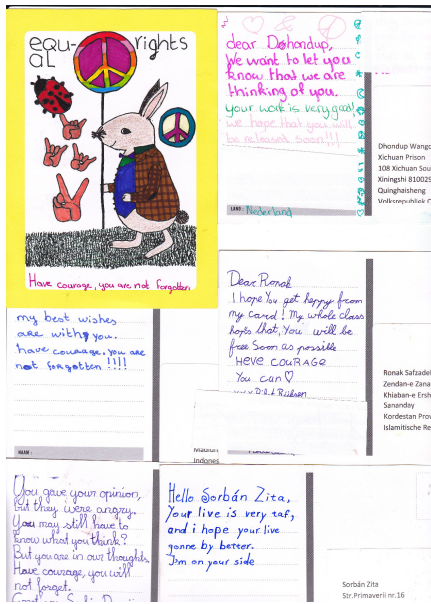 equ- rights
al
Have courage, you are not forgotten
dear Dohondup,
We want to let you
know that we are
thinking of you.
your work is very good!
we hope that you will
be released soon!!!
LAND: Nederland
Dhondup Wango
Xichuan Prison
108 Xichuan Sou
Xiningshi 810029
Quinghaisheng
Volksrepubliek C
my best wishes
are with you.
have courage, you are
not forgotten !!!!
NAAM:
Dear Ronak
I hope You get happy from
my card! My whole class
hopes that, You will be
free Soon as possible
HEVE COURAGE
You can♡
Indones
Ronak Safzadel
Zendan-e Zana
Khiaban-e Ersh
Sananday
Kordestan Prov
Islamitische Re
You gave your opinion,
but they were angry.
You may still have to
know what you think?
But you are in our thoughts.
Have courage, you will
not forget.
Hello Sorbán Zita,
Your live is very taf,
and i hope your live
gonne by better.
I'm on your side
Sorbán Zita
Str.Primaverii nr.16